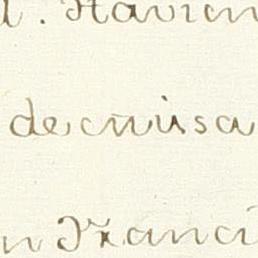 d. Havien
de cuisa
n Franci